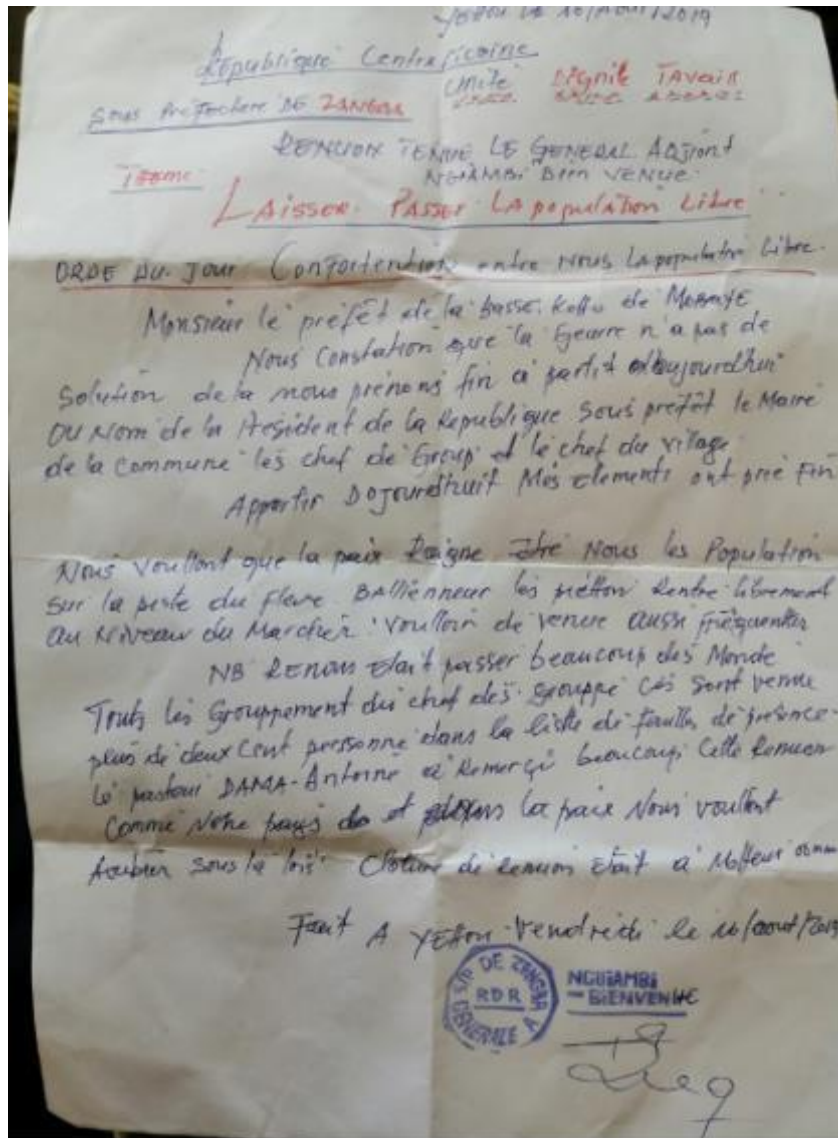 Yettou le 16/Aout/2019
République Centraficaine
Unité Dignite TAvair
Sous Prefecture DE ZANGBA
REMUION TENUE LE GENERAL ADJIONT
NGIAMBI Bien VENUE
TEEME
LAISSER PASSER LA population Libre
ORDE DU JOUR Confortention entre Nous La population Libre.
Monsieur le préfêt de la Basse. Kotto de MOBAYE
Nous Constation que la Geurre n'a pas de
Solution de la nous prénons fin a partit daujourdhui
OU Nom de la Président de la République Sous prefêt le Maire
de la Commune les chef de Group et le chef du village
Appartir Dojourdhuit Mes elements ont prie Fin
Nous Voullont que la paix Reigne Nous les Population
Sur la piste du fleve les piétton Rentre librement
au Niveau du Marcher. Voulloir de venue aussi fréquenter
NB Etait passer beaucoup des Monde
Touts les Grouppement du chef des grouppe Cés sont venue
plus de deux Cent pressonne dans la liste de failles de présence
Le pastour DAMA-Antoine a Remerçi beaucoup Cette Remuion
Comme Notre pays la paix Nous voullont
Sous la lois Cloture de Remuion Etait a
Fait A Yettou Vendredi le 16/aout/2019
S/P DE ZANGBA
RDR
GENERALE A
NGUIAMBI
BIENVENUE